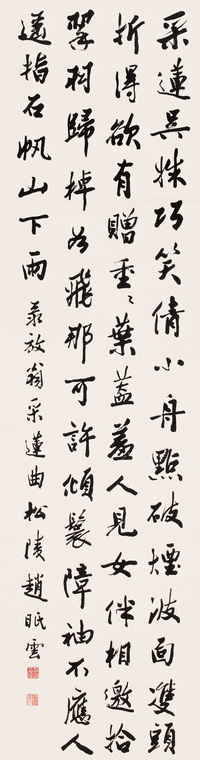 采蓮吳姝巧笑倩小舟點破煙波面雙頭
折得欲有贈重〻葉蓋羞人見女伴相邀拾
翠羽歸棹如飛那可許傾鬟障袖不應人
遙指石帆山下雨 彔放翁采蓮曲松陵趙眠雲